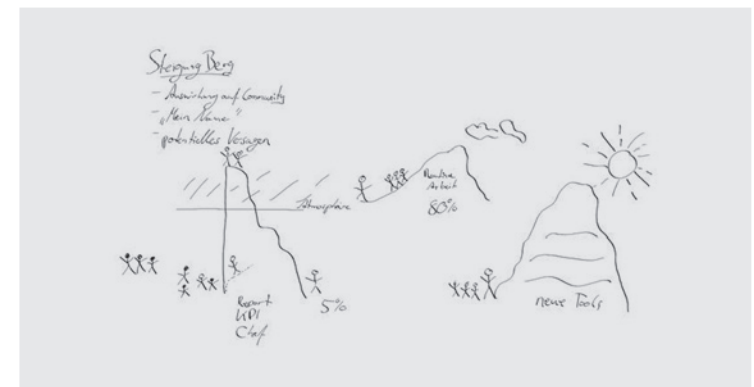 Steigung Berg
- Auswirkung auf Community
- „Mein Name"
- potentielles Versagen
Atmosphäre
Routine
Arbeit
80%
5%
KPI
Chef
neue Tools